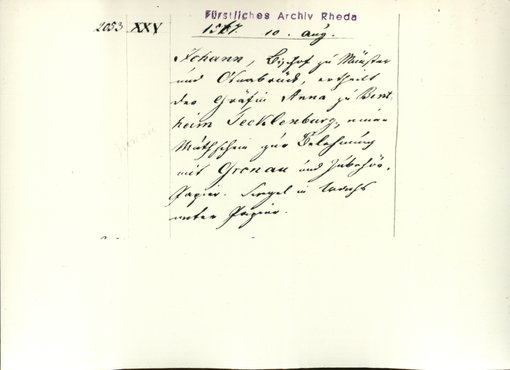 Fürstliches Archiv Rheda
2053 XXV 10. Aug.
Johann, Bischof zu Münster
und Osnabrück, ertheilt
der Gräfin Anna zu Bent-
heim Tecklenburg, einen
Muthschein zur Belehnung
mit Gronau und Zubehör.
Papier. Siegel in Wachs
unter Papier.